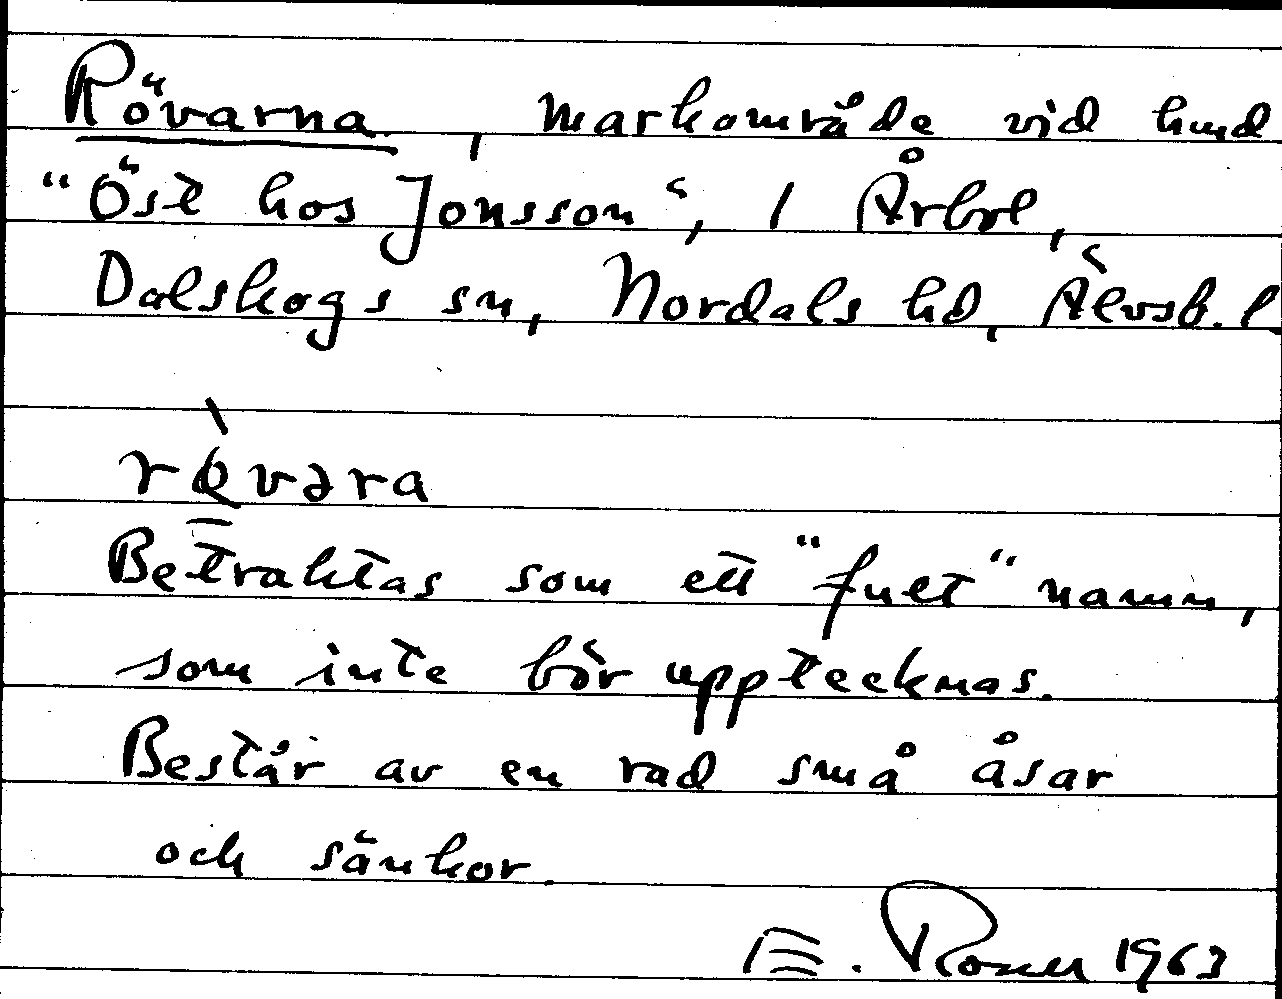 Rövarna, markområde vid hmd
"Öst hos Jonsson", i Årbol,
Dalskogs sn, Nordals hd, Älvsb. l
rø̀vəra
Betraktas som ett "fult" namn,
som inte bör upptecknas.
Består av en rad små åsar
och sänkor.
E. 1963